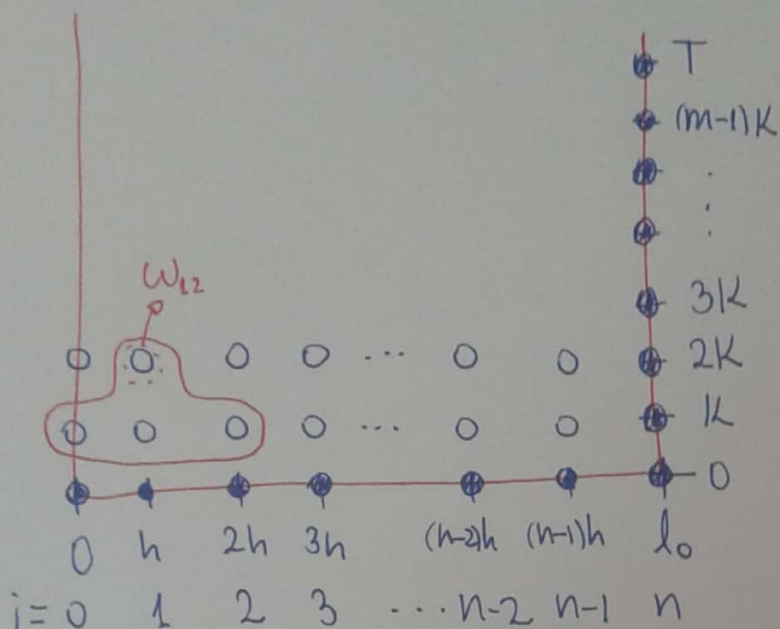 T
(m-1)K
⋮
3K
ω₁₂
... 2K
... K
0
0 h 2h 3h (n-2)h (n-1)h l₀
i= 0 1 2 3 ... n-2 n-1 n